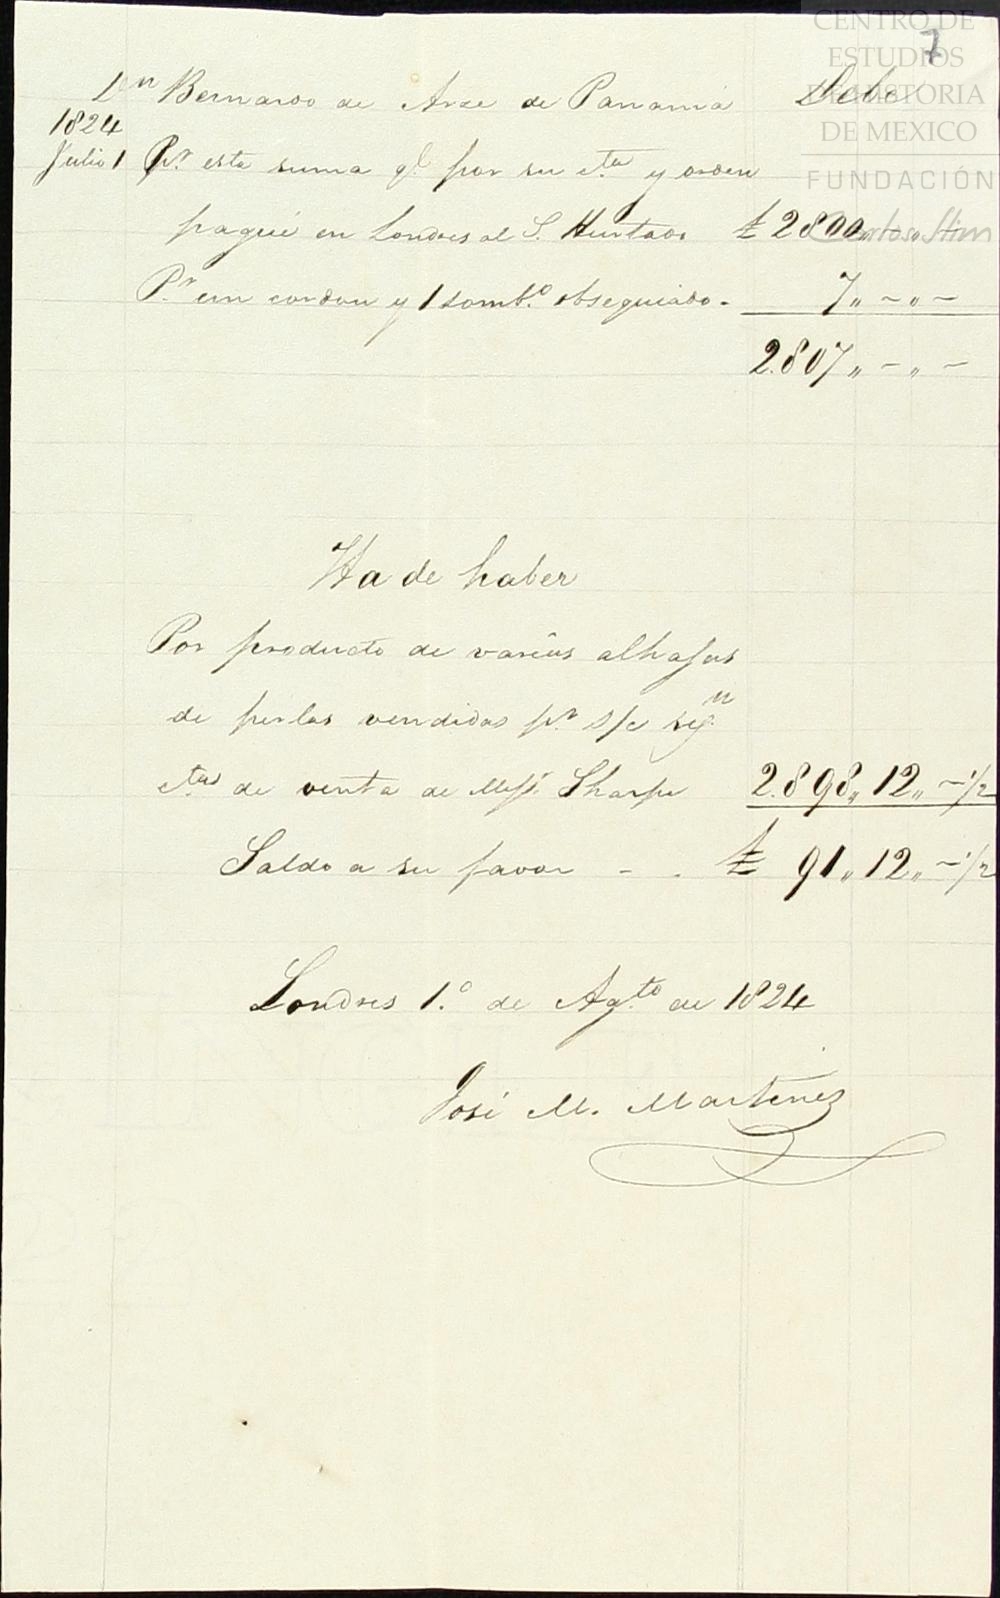 7
Dn Bernardo de Arze de Panamá Debe
1824
Julio 1 Pr. esta suma q.e por su cta y orden
pagué en Londres al S. Hurtado £ 2800,, -,, -
Pr un cordon y 1 somb.o obsequiado - 7,, -,, -
2.807,, -,, -
Ha de haber
Por producto de varias alhajas
de perlas vendidas pr. s/c seg.n
ctas de venta de Mess. Sharpe 2.898,, 12,, - 1/2
Saldo a su favor - . £ 91,, 12,, - 1/2
Londres 1.o de Ag.to de 1824
José M. Martinez
CENTRO DE
ESTUDIOS
DE HISTORIA
DE MEXICO
FUNDACIÓN
Carlos Slim